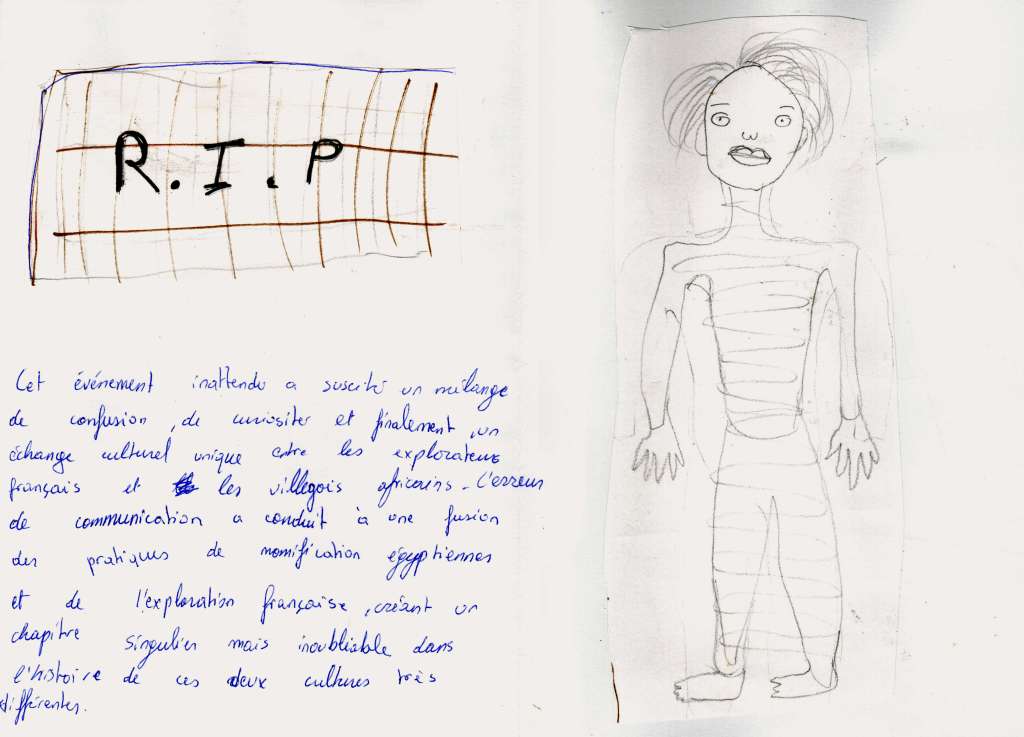 R.I.P
Cet événement inattendu a suscité un mélange
de confusion, de curiositer et finalement, un
échange culturel unique entre les explorateurs
français et les villegois africains. L'erreur
de communication a conduit à une fusion
des pratiques de momification égyptiennes
et de l'exploration française, créant un
chapitre singulier mais inoubliable dans
l'histoire de ces deux cultures très
différentes.